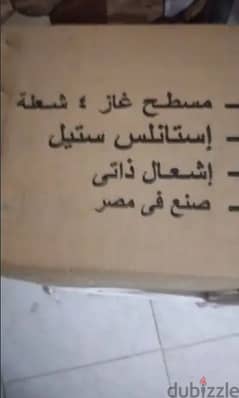 مسطح غاز ٤ شعلة
إستانلس ستيل
إشعال ذاتى
صنع فى مصر
dubizzle